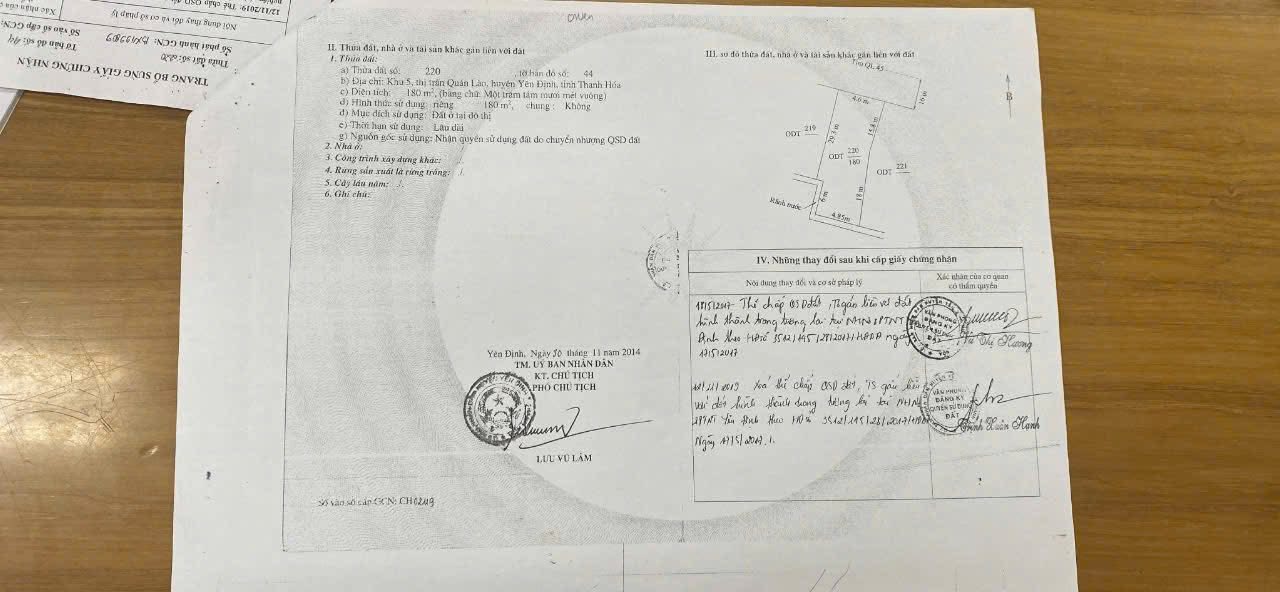 Owen
TRANG BỔ SUNG GIẤY CHỨNG NHẬN
Thửa đất số: 220
Tờ bản đồ số: 44
Số phát hành GCN:
Số vào sổ cấp GCN:
Nội dung thay đổi và cơ sở pháp lý
Xác nhận của
12/11/2019: Thế chấp QSD
II. Thửa đất, nhà ở và tài sản khác gắn liền với đất
1. Thửa đất:
a) Thửa đất số: 220 , tờ bản đồ số: 44
b) Địa chỉ: Khu 5, thị trấn Quán Lào, huyện Yên Định, tỉnh Thanh Hóa
c) Diện tích: 180 m², (bằng chữ: Một trăm tám mươi mét vuông)
d) Hình thức sử dụng: riêng 180 m², chung : Không
đ) Mục đích sử dụng: Đất ở tại đô thị
e) Thời hạn sử dụng: Lâu dài
g) Nguồn gốc sử dụng: Nhận quyền sử dụng đất do chuyển nhượng QSD đất
2. Nhà ở:
3. Công trình xây dựng khác: ./.
4. Rừng sản xuất là rừng trồng: ./.
5. Cây lâu năm: ./.
6. Ghi chú:
Yên Định, Ngày 10 tháng 11 năm 2014
TM. UỶ BAN NHÂN DÂN
KT. CHỦ TỊCH
PHÓ CHỦ TỊCH
LƯU VŨ LÂM
Số vào sổ cấp GCN: CH0249
III. sơ đồ thửa đất, nhà ở và tài sản khác gắn liền với đất
Tim QL 45
16 m
B
4.0 m
ODT 219
29.3 m
15.8 m
ODT 220
180
ODT 221
Rãnh nước
6 m
18 m
4.85m
IV. Những thay đổi sau khi cấp giấy chứng nhận
Nội dung thay đổi và cơ sở pháp lý
Xác nhận của cơ quan
có thẩm quyền
18/5/2017 Thế chấp QSD đất, TS gắn liền với đất
hình thành trong tương lai tại NHNo&PTNT
Định theo HĐ số 3512/195/28/2017/HĐTC ngày
17/5/2017
VĂN PHÒNG
ĐĂNG KÝ
QUYỀN SỬ DỤNG
ĐẤT
Vũ Thị Hương
12/11/2019 Xoá thế chấp QSD đất, TS gắn liền
với đất hình thành trong tương lai tại NHNo
&PTNT Yên Định theo HĐ số 3512/195/28/2017/HĐTC
Ngày 17/5/2017./.
VĂN PHÒNG
ĐĂNG KÝ
QUYỀN SỬ DỤNG
ĐẤT
Trịnh Xuân Hạnh